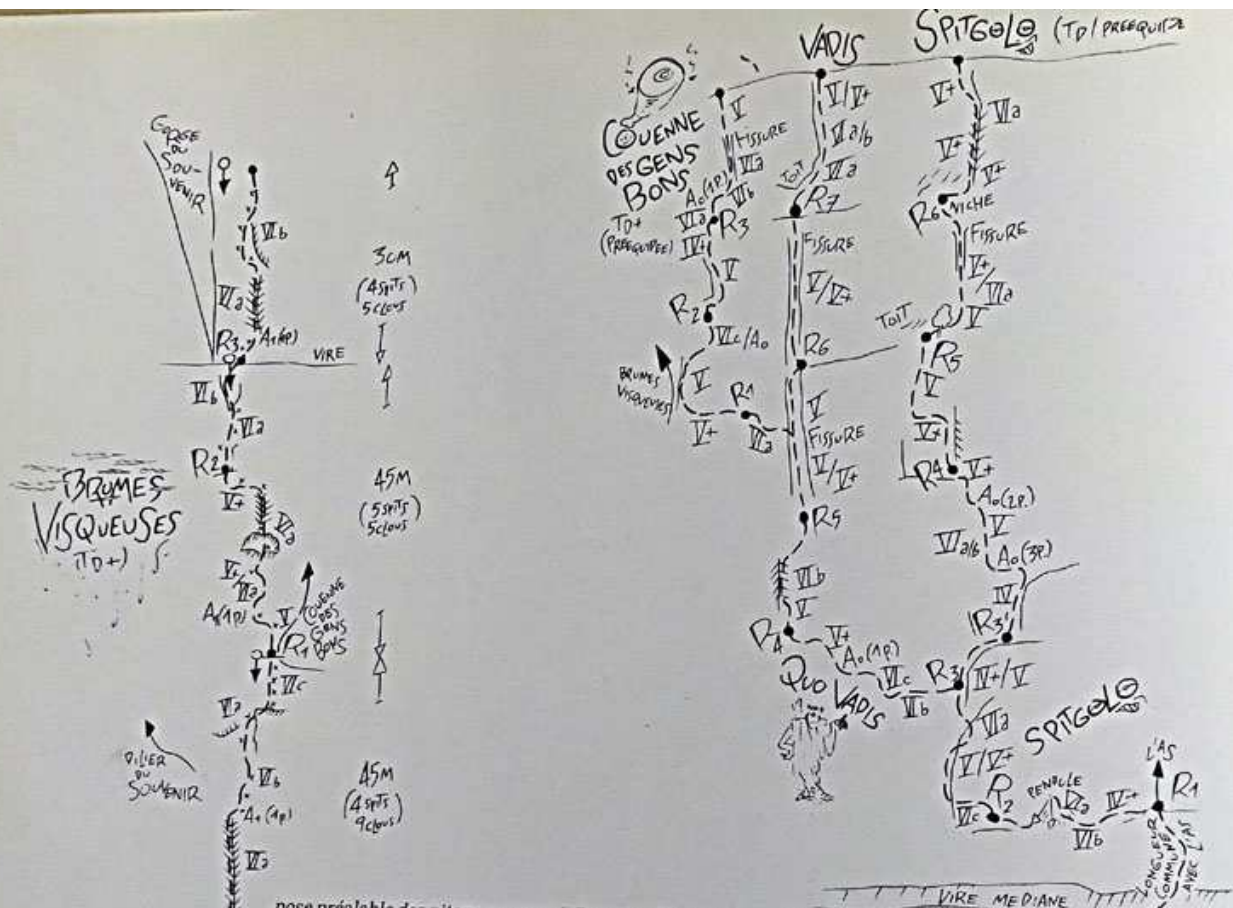 GORGE
DU
SOU-
VENIR
VIb
VIa
R3
A1(6P)
VIRE
3CM
(4SPITS)
5CLOUS
VIb
VIa
R2
V+
VIa
45M
(5SPITS)
5CLOUS
BRUMES
VISQUEUSES
(TD+)
V+
VIa
A1(1P)
V
COUENNE
DES
GENS
BONS
R1
VIc
VIa
PILIER
DU
SOUVENIR
VIb
A1(1P)
VIa
45M
(4SPITS)
9CLOUS
COUENNE
DES GENS
BONS
TD+
(PREEQUIPEE)
V
FISSURE
VIa
A0(1P.)
VIb
VIa
R3
IV+
V
R2
VIc/A0
BRUMES
VISQUEUSES
V
V+
R1
VIa
VADIS
V/V+
VIa/b
TOIT
VIa
R7
FISSURE
V/V+
R6
V
FISSURE
V/V+
R5
VIb
V
R4
V+
A0(1P.)
VIc
VIb
QUO
VADIS
SPITGOLO (TD/PREEQUIPEE
V+
VIa
V+
V+
R6
NICHE
FISSURE
V+/
VIa
TOIT
V
R5
V
V+
R4
V+
A0(2P.)
V
VIa/b
A0(3P.)
IV
R3'
R3
IV+/V
VIa
SPITGOLO
V/V+
R2
VIc
PENDULE
VIa
VIb
IV+
L'AS
R1
LONGUEUR
COMMUNE
AVEC L'AS
VIRE MEDIANE